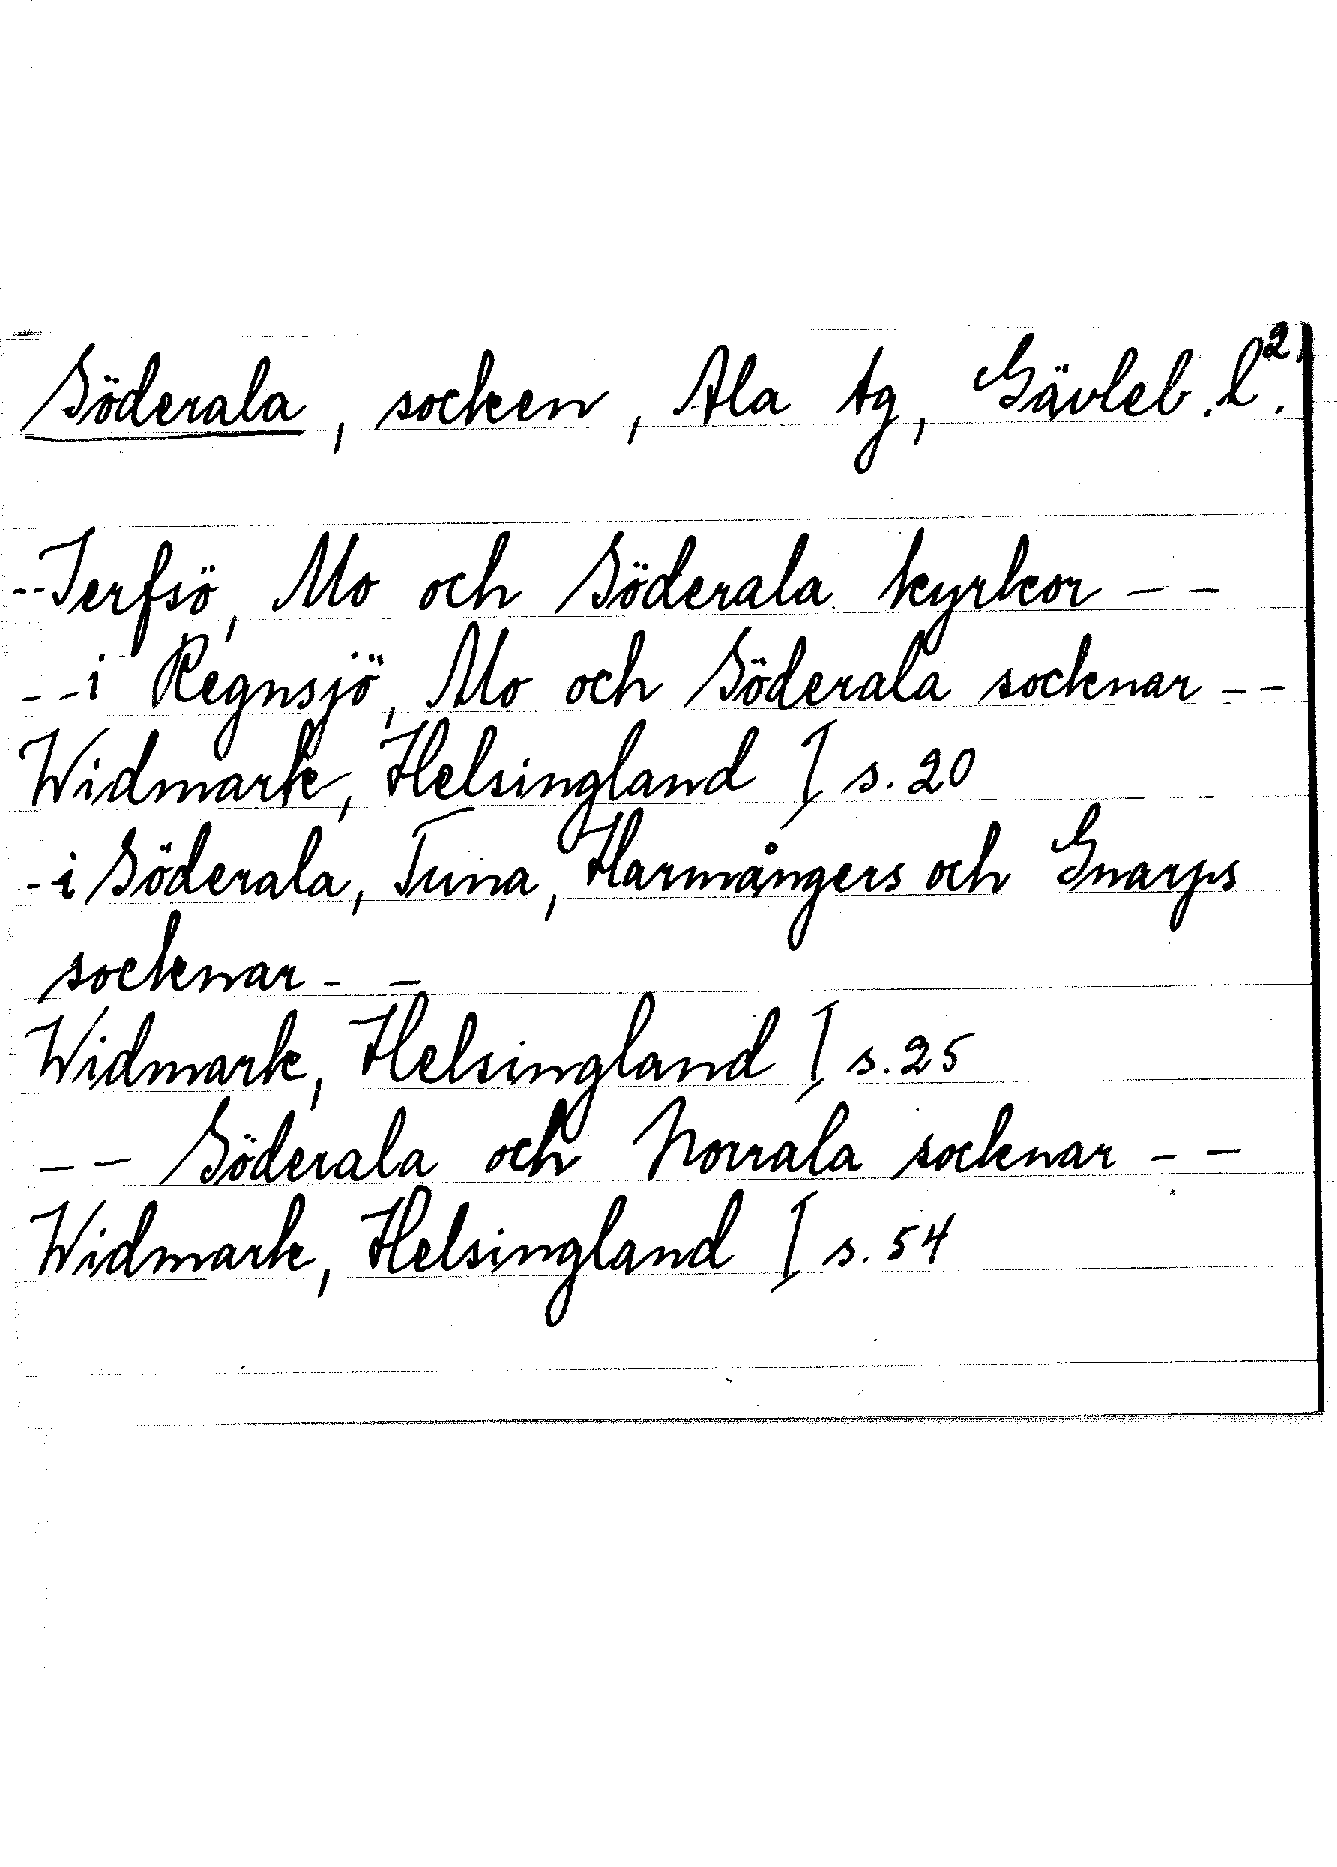 2)
Söderala, socken, Ala tg, Gävleb. l.
--Jerfsö, Mo och Söderala kyrkor - -
- - i Regnsjö, Mo och Söderala socknar - -
Widmark, Helsingland I s. 20
- i Söderala, Tuna, Harmångers och Gnarps
socknar - -
Widmark, Helsingland I s. 25
- - Söderala och Norrala socknar - -
Widmark, Helsingland I s. 54